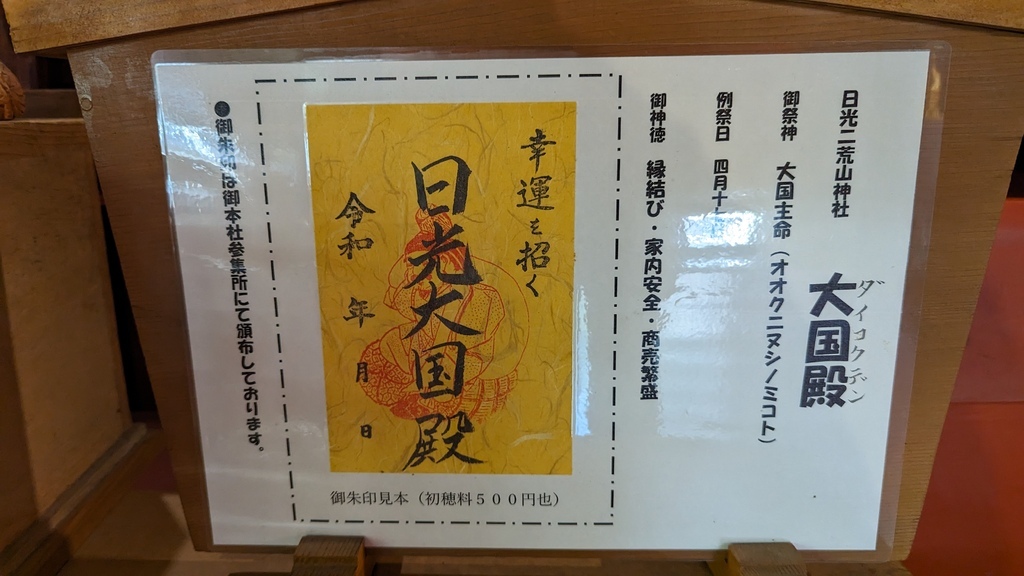 日光二荒山神社
大国殿
ダイコクデン
御祭神 大国主命(オオクニヌシノミコト)
例祭日 四月十七日
御神徳 縁結び・家内安全・商売繁盛
幸運を招く
日光大国殿
令和 年 月 日
御朱印見本(初穂料500円也)
●御朱印は御本社参集所にて頒布しております。